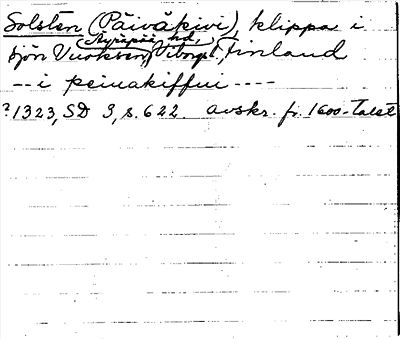 Solsten (Päiväkivi), klippa i
(Äyräpää hd,)
sjön Vuoksen, Viborgs l, Finland
-- i peiuakiffui ----
?1323, SD 3, s. 622. avskr. fr. 1600-talet